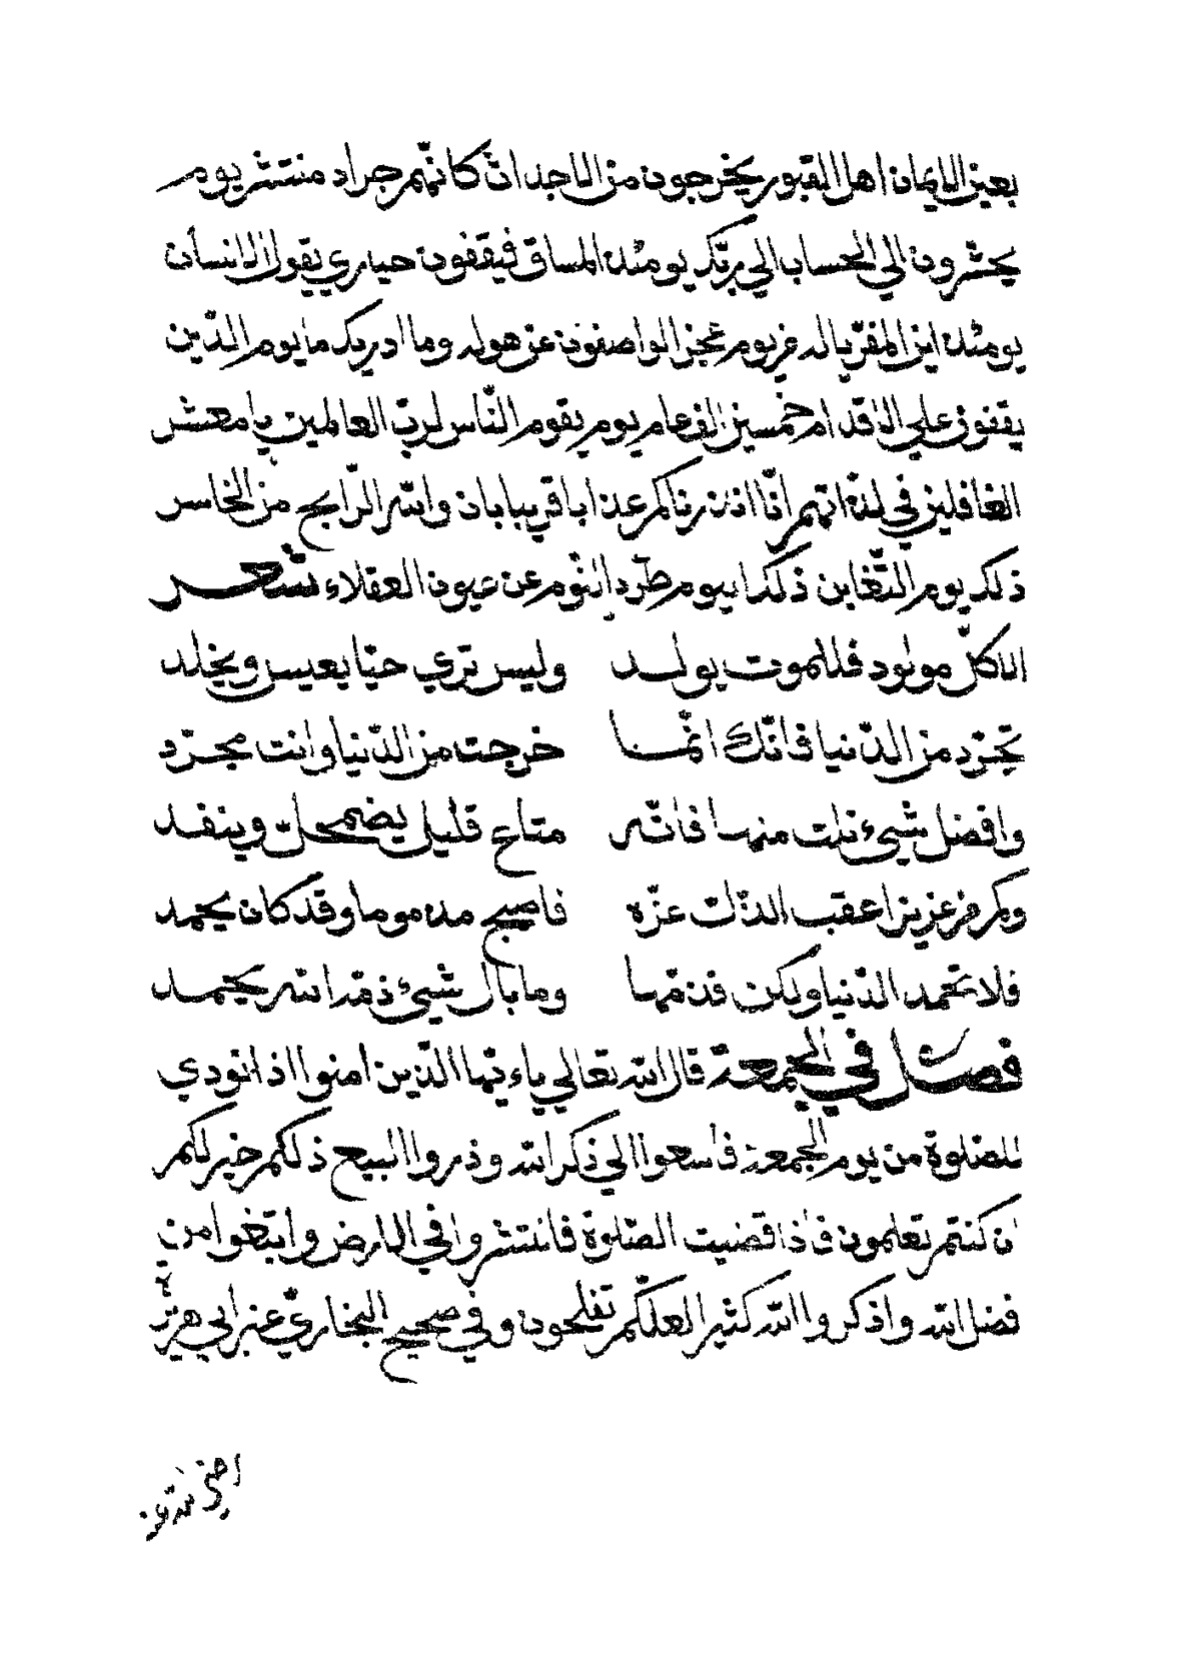 بعين الايمان اهل القبور يخرجون من الاجداث كانّهم جراد منتشر يوم
يحشرون الي الحساب الي ربّك يومئذ المساق فيقفون حياري يقول الانسان
يومئذ اين المفرّ ياله من يوم عجز الواصفون عن هوله وما ادريك ما يوم الدّين
يقفون علي الاقدام خمسين الف عام يوم يقوم النّاس لربّ العالمين يا معشر
الغافلين في لذّاتهم انّا انذرناكم عذابا قريبا بان والله الرّابح من الخاسر
ذلك يوم التّغابن ذلك اليوم طرد النّوم عن عيون العقلاء شعر
الا كلّ مولود فللموت يولد وليس تري حيّا يعيس ويخلد
تجرّد من الدّنيا فانّك انّما خرجت من الدّنيا وانت مجرّد
وافضل شيء نلت منها فانّه متاع قليل يضمحلّ وينفد
وكم من عزيز اعقب الذّلّ عزّه فاصبح مذموما وقد كان يحمد
فلا تحمد الدّنيا ولكن فذمّها وما بال شيء ذمّه الله يحمد
فصل في الجمعة قال الله تعالي ياءيّها الّذين امنوا اذا نودي
للصّلوة من يوم الجمعة فاسعوا الي ذكر الله وذروا البيع ذلكم خير لكم
ان كنتم تعلمون فاذا قضيت الصّلوة فانتشروا في الارض وابتغوا من
فضل الله واذكروا الله كثيرا لعلّكم تفلحون وفي صحيح البخاريّ عن ابي هريرة